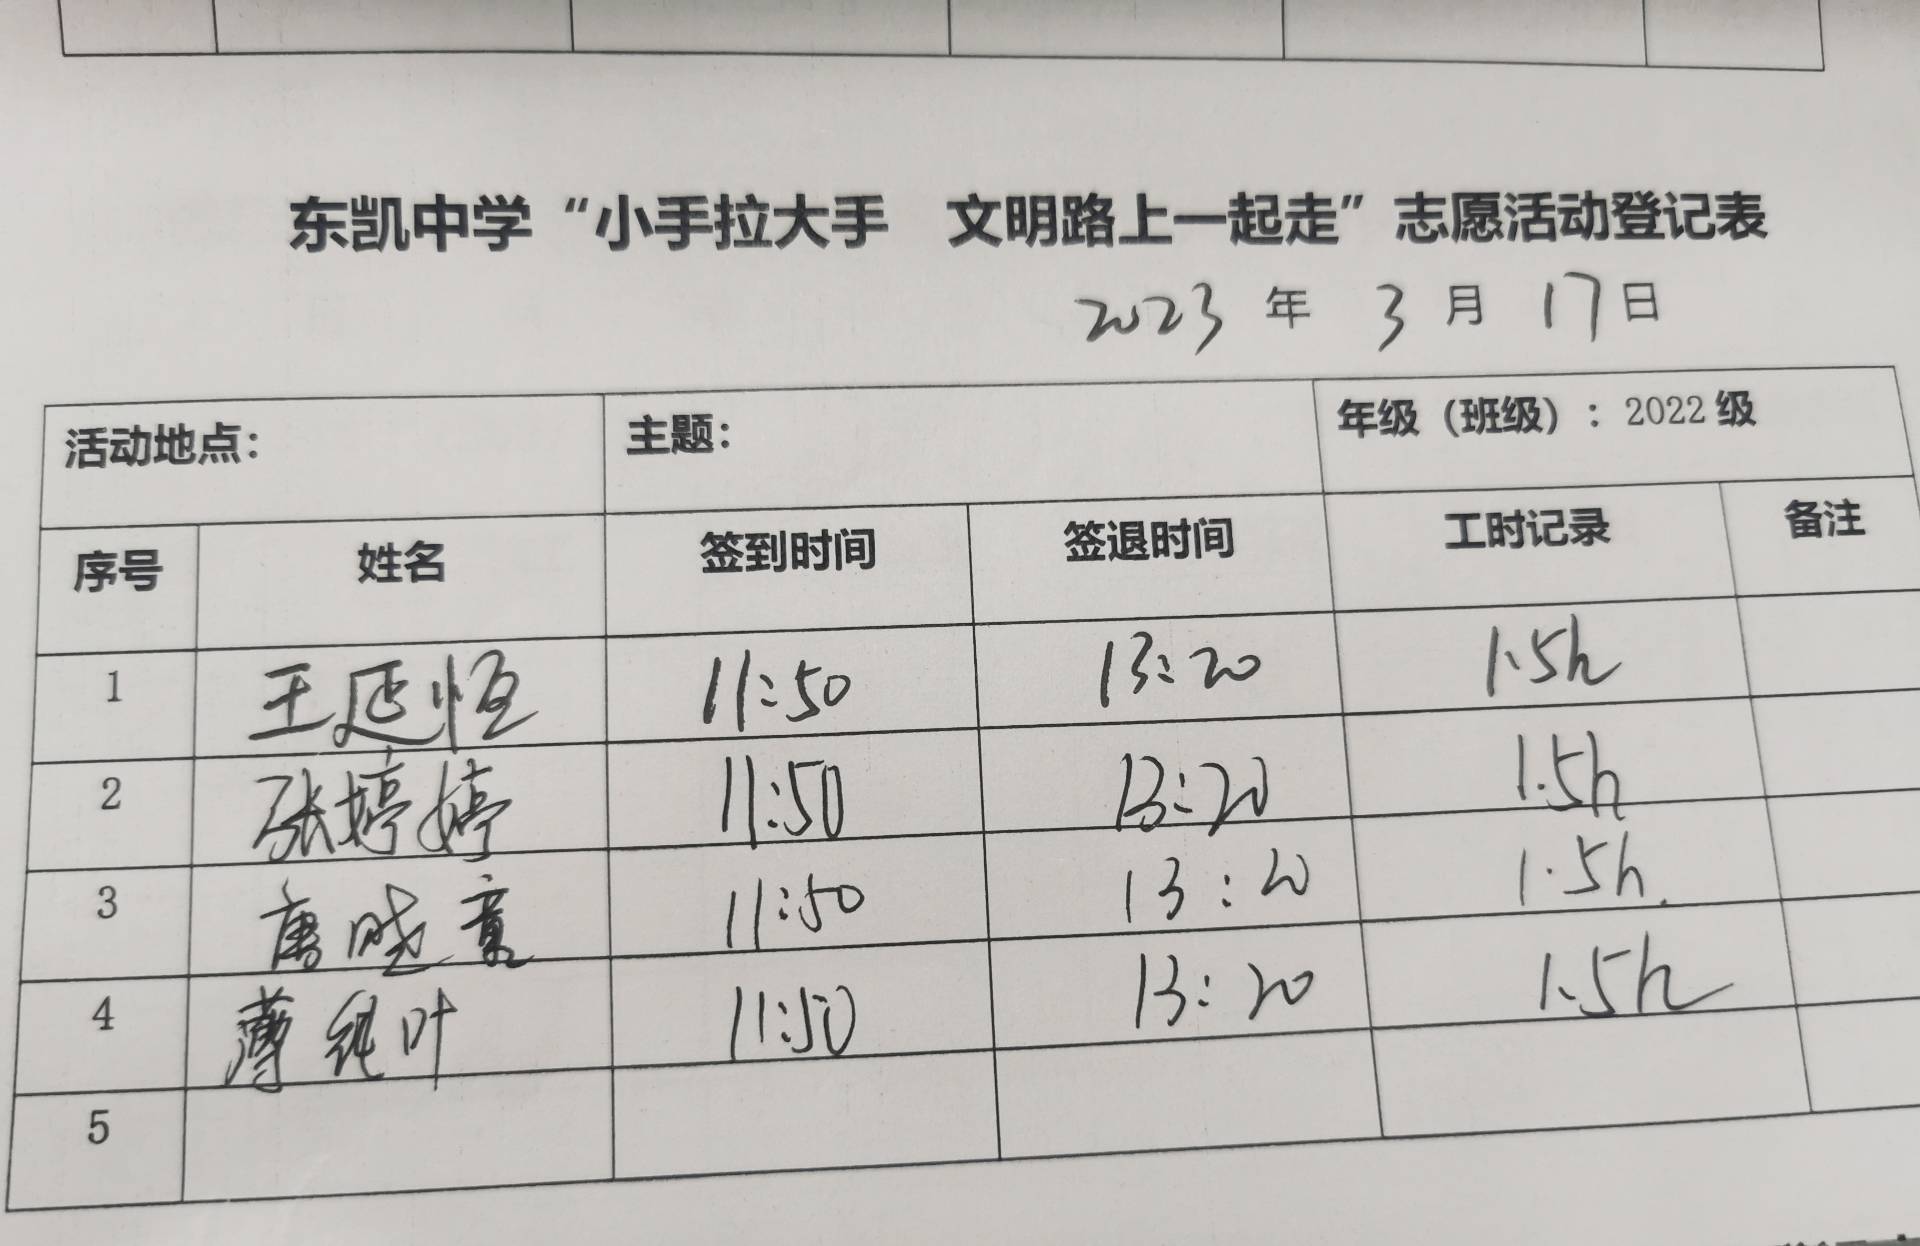 东凯中学“小手拉大手 文明路上一起走”志愿活动登记表
2023 年 3 月 17 日
活动地点： 主题： 年级（班级）：2022 级
序号 姓名 签到时间 签退时间 工时记录 备注
1 王延恒 11:50 13:20 1.5h
2 张婷婷 11:50 13:20 1.5h
3 唐晓 11:50 13:20 1.5h.
4 薄纯叶 11:50 13:20 1.5h
5